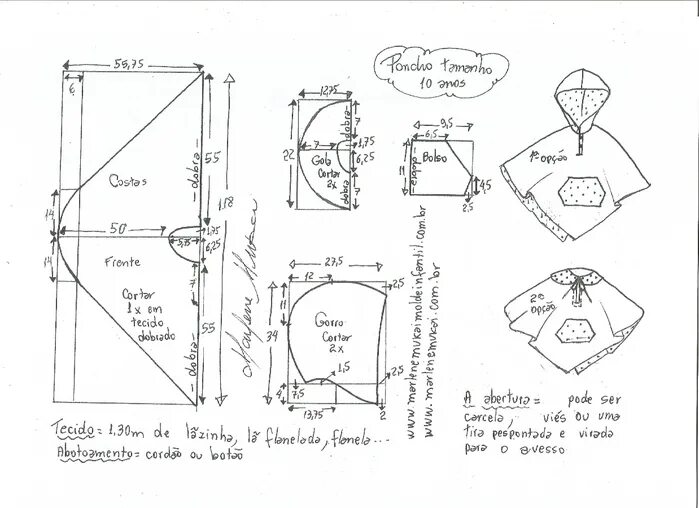 Poncho tamanho
10 anos
55,75
6
Costas
dobra
55
118
14
50
1,75
5,75
6,25
14
Frente
7
Cortar
1x em
tecido
dobrado
dobra
55
12,75
22
7
dobra
7
1,75
Gola
Cortar
2x
6,25
dobra
7
9,5
6,5
11
dobra
Bolso
4,5
2,5
27,5
12
2,5
11
34
Gorro
Cortar
2x
1,5
2,5
4
7,5
13,75
2
Marlene Mukai
www.marlenemukaimoldeinfantil.com.br
www.marlenemukai.com.br
1ª opção
2ª
opção
Tecido = 1,30m de lãzinha, lã flanelada, flanela...
Abotoamento = cordão ou botão
A abertura = pode ser
carcela, viés ou uma
tira pespontada e virada
para o avesso